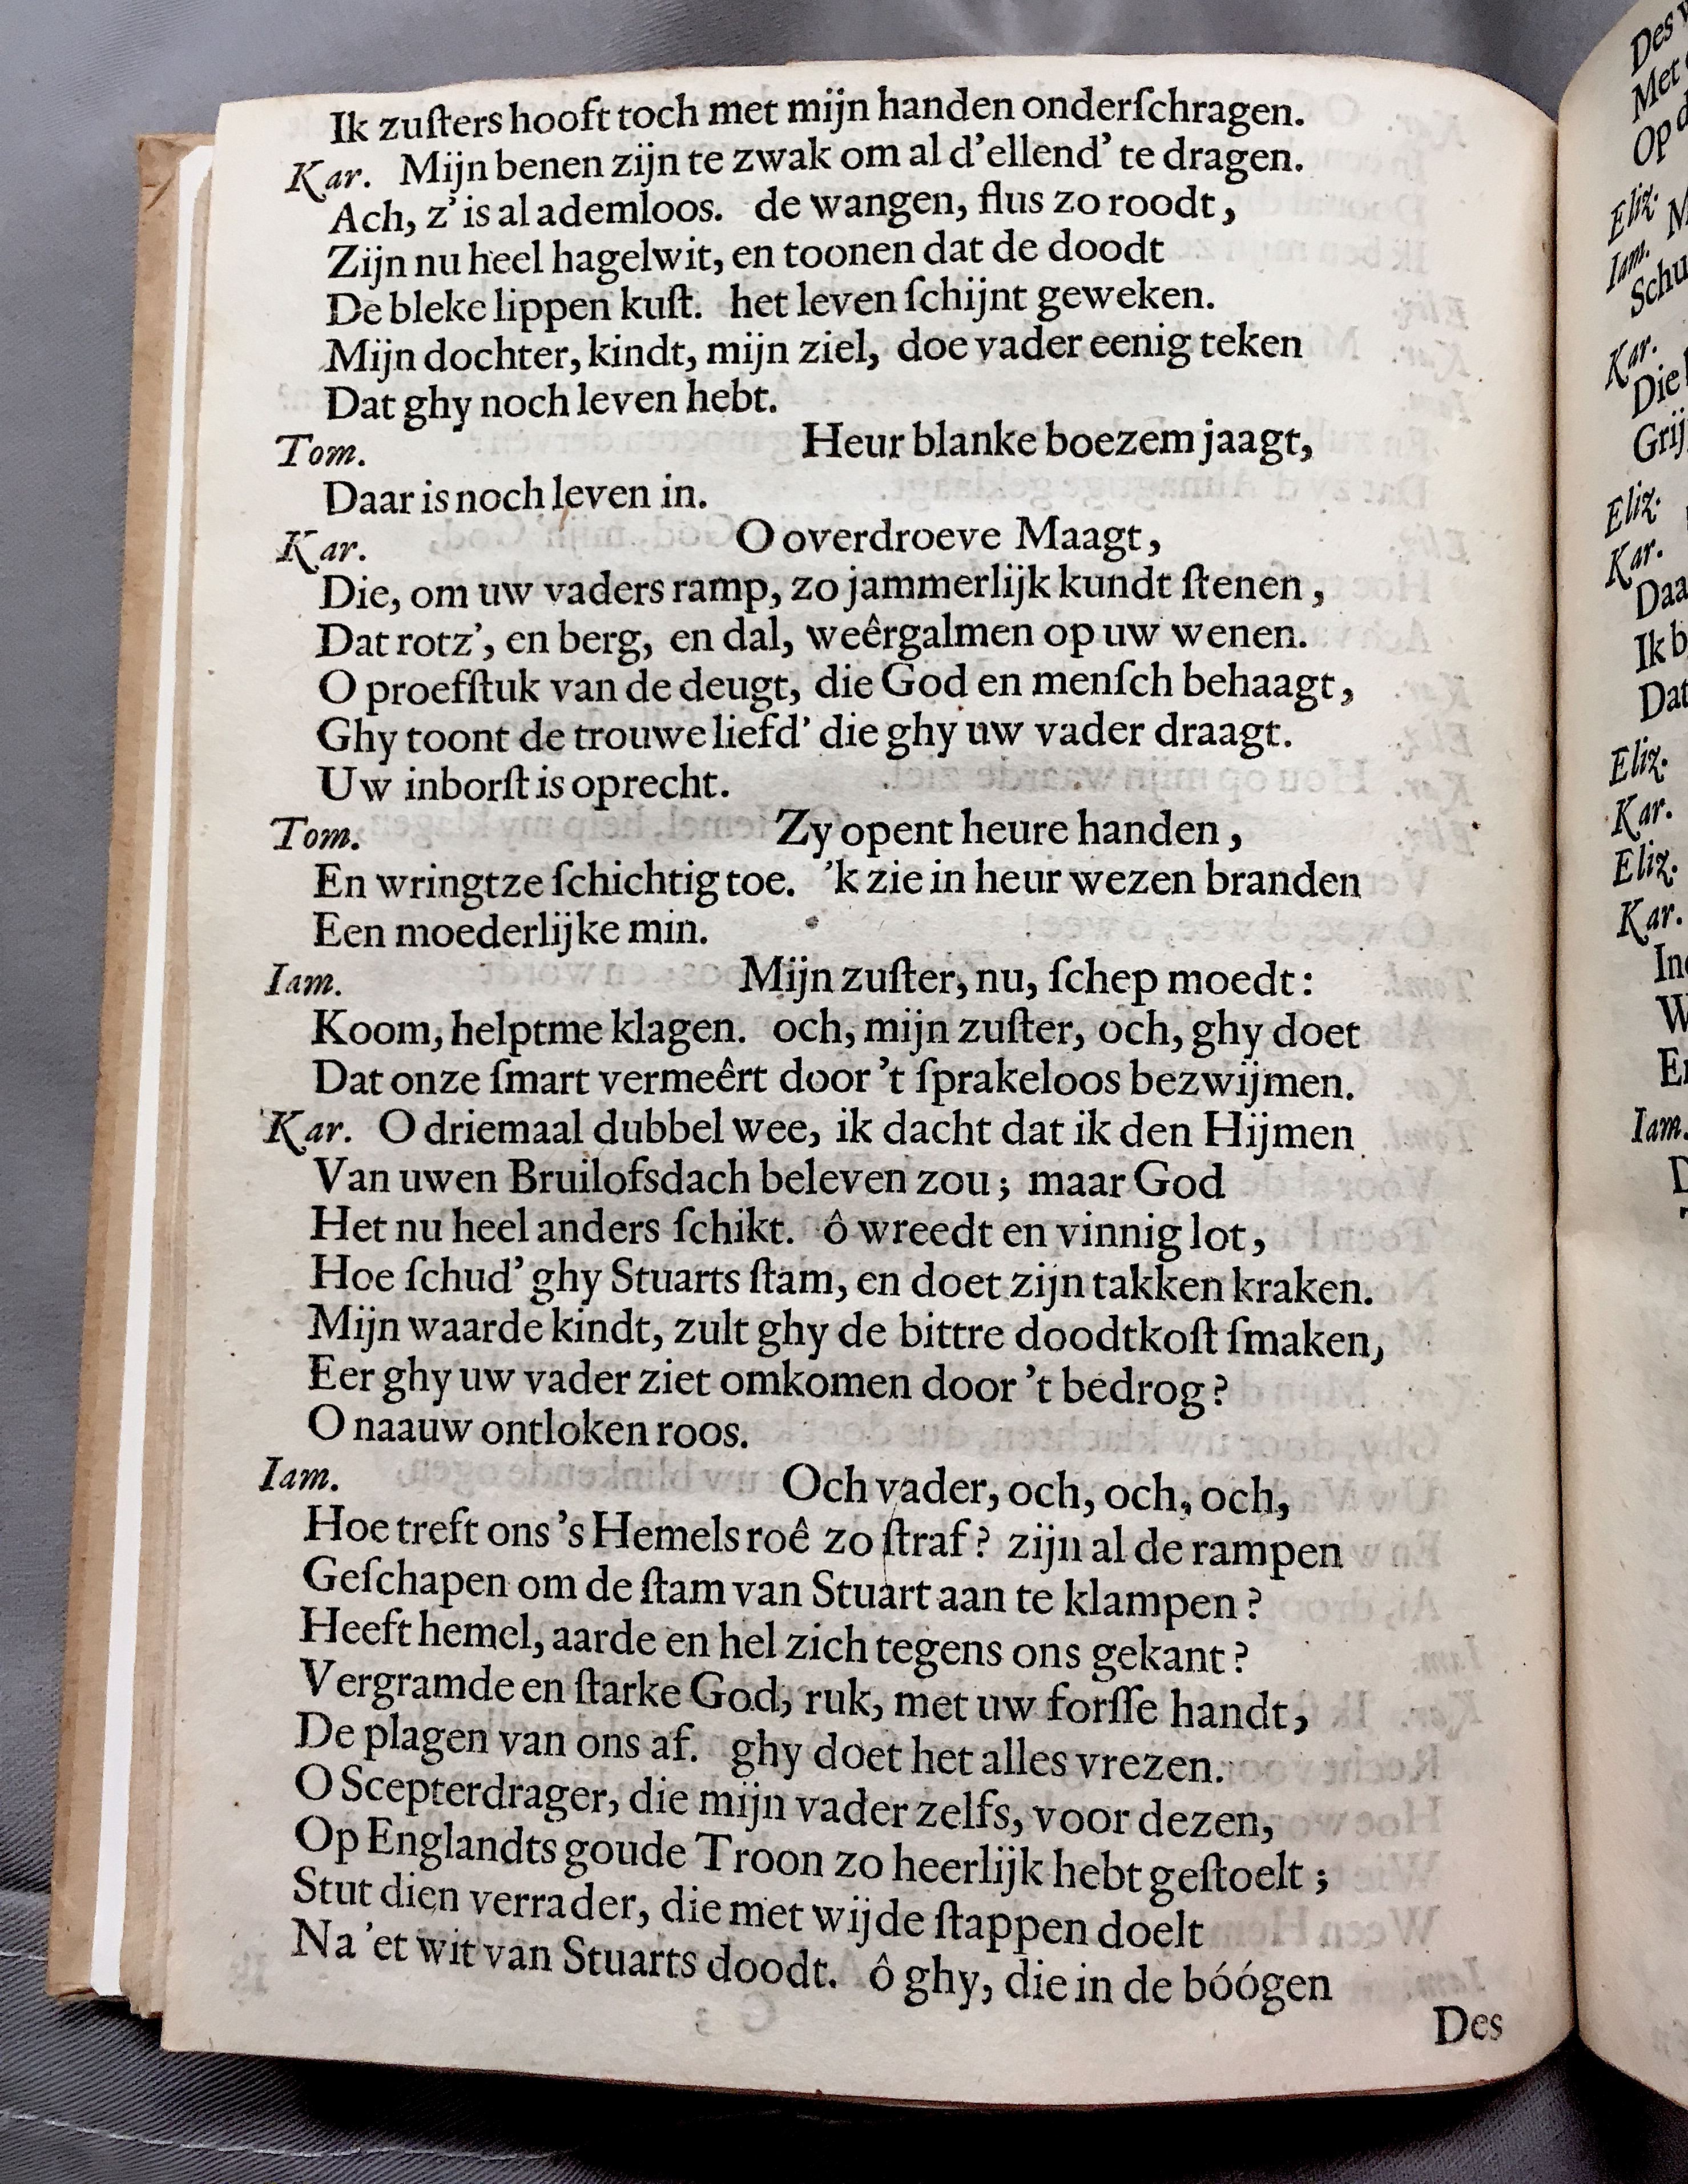 Ik zuſters hooft toch met mijn handen onderſchragen.
Kar. Mijn benen zijn te zwak om al d'ellend' te dragen.
Ach, z' is al ademloos. de wangen, flus zo roodt,
Zijn nu heel hagelwit, en toonen dat de doodt
De bleke lippen kuſt. het leven ſchijnt geweken.
Mijn dochter, kindt, mijn ziel, doe vader eenig teken
Dat ghy noch leven hebt.
Tom. Heur blanke boezem jaagt,
Daar is noch leven in.
Kar. O overdroeve Maagt,
Die, om uw vaders ramp, zo jammerlijk kundt ſtenen,
Dat rotz', en berg, en dal, weêrgalmen op uw wenen.
O proefſtuk van de deugt, die God en menſch behaagt,
Ghy toont de trouwe liefd' die ghy uw vader draagt.
Uw inborſt is oprecht.
Tom. Zy opent heure handen,
En wringtze ſchichtig toe. 'k zie in heur wezen branden
Een moederlijke min.
Iam. Mijn zuſter, nu, ſchep moedt:
Koom, helptme klagen. och, mijn zuſter, och, ghy doet
Dat onze ſmart vermeêrt door 't ſprakeloos bezwijmen.
Kar. O driemaal dubbel wee, ik dacht dat ik den Hijmen
Van uwen Bruilofsdach beleven zou; maar God
Het nu heel anders ſchikt. ô wreedt en vinnig lot,
Hoe ſchud' ghy Stuarts ſtam, en doet zijn takken kraken.
Mijn waarde kindt, zult ghy de bittre doodtkoſt ſmaken,
Eer ghy uw vader ziet omkomen door 't bedrog?
O naauw ontloken roos.
Iam. Och vader, och, och, och,
Hoe treft ons 's Hemels roê zo ſtraf? zijn al de rampen
Geſchapen om de ſtam van Stuart aan te klampen?
Heeft hemel, aarde en hel zich tegens ons gekant?
Vergramde en ſtarke God, ruk, met uw forſſe handt,
De plagen van ons af. ghy doet het alles vrezen.
O Scepterdrager, die mijn vader zelfs, voor dezen,
Op Englandts goude Troon zo heerlijk hebt geſtoelt;
Stut dien verrader, die met wijde ſtappen doelt
Na 'et wit van Stuarts doodt. ô ghy, die in de bóógen
Des
Des
Met
Op
Eliz.
Iam.
Schu
Kar.
Die
Grij
Eliz.
Kar.
Daa
Ik b
Dat
Eliz.
Kar.
Eliz.
Kar.
Iam.